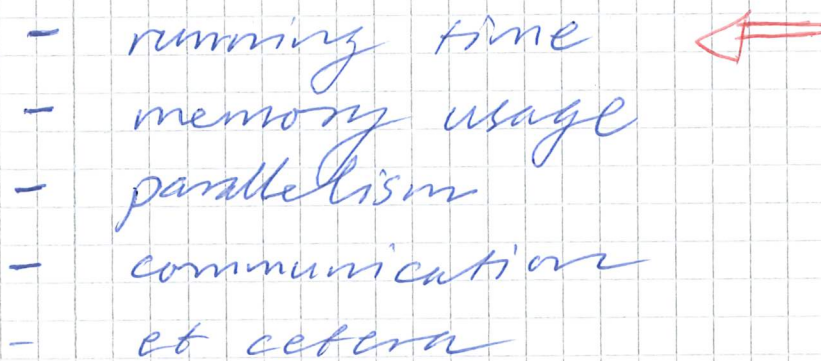 - running time
- memory usage
- parallelism
- communication
- et cetera